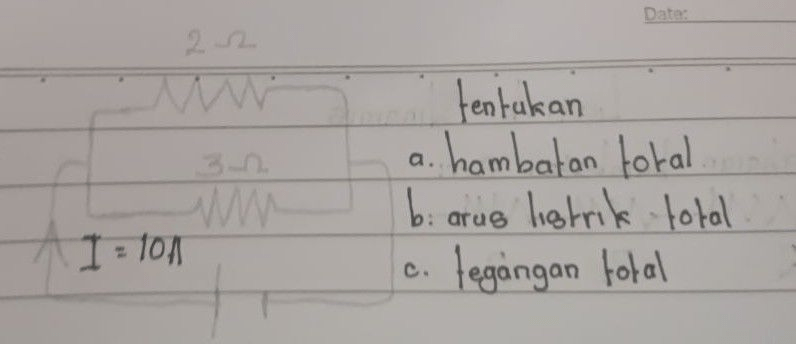 Date:
2 Ω
tentukan
3 Ω
a. hambatan total
b. arus listrik total
I = 10A
c. tegangan total